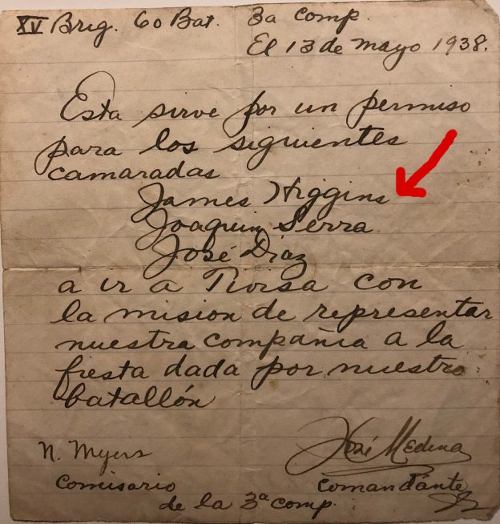 XV Brig. 60 Bat. 3a Comp.
El 13 de mayo 1938.
Esta sirve por un permiso
para los siguientes
camaradas
James Higgins
Joaquin Serra
José Diaz
a ir a Tivisa con
la mision de representar
nuestra compañia a la
fiesta dada por nuestro
batallón
N. Myers José Medina
Comisario Comandante
de la 3ª comp.